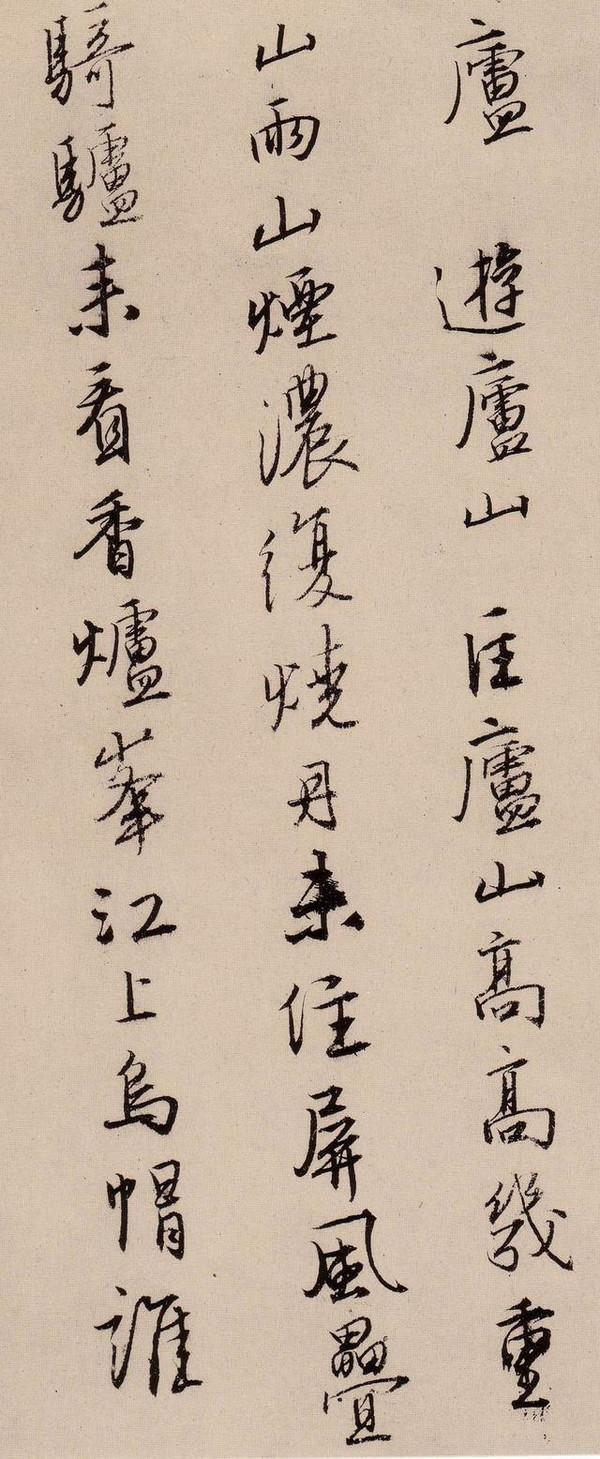 廬　遊廬山　匡廬山高高幾重
山雨山煙濃復燒丹来住屏風疊
騎驢来看香爐峯江上烏帽誰